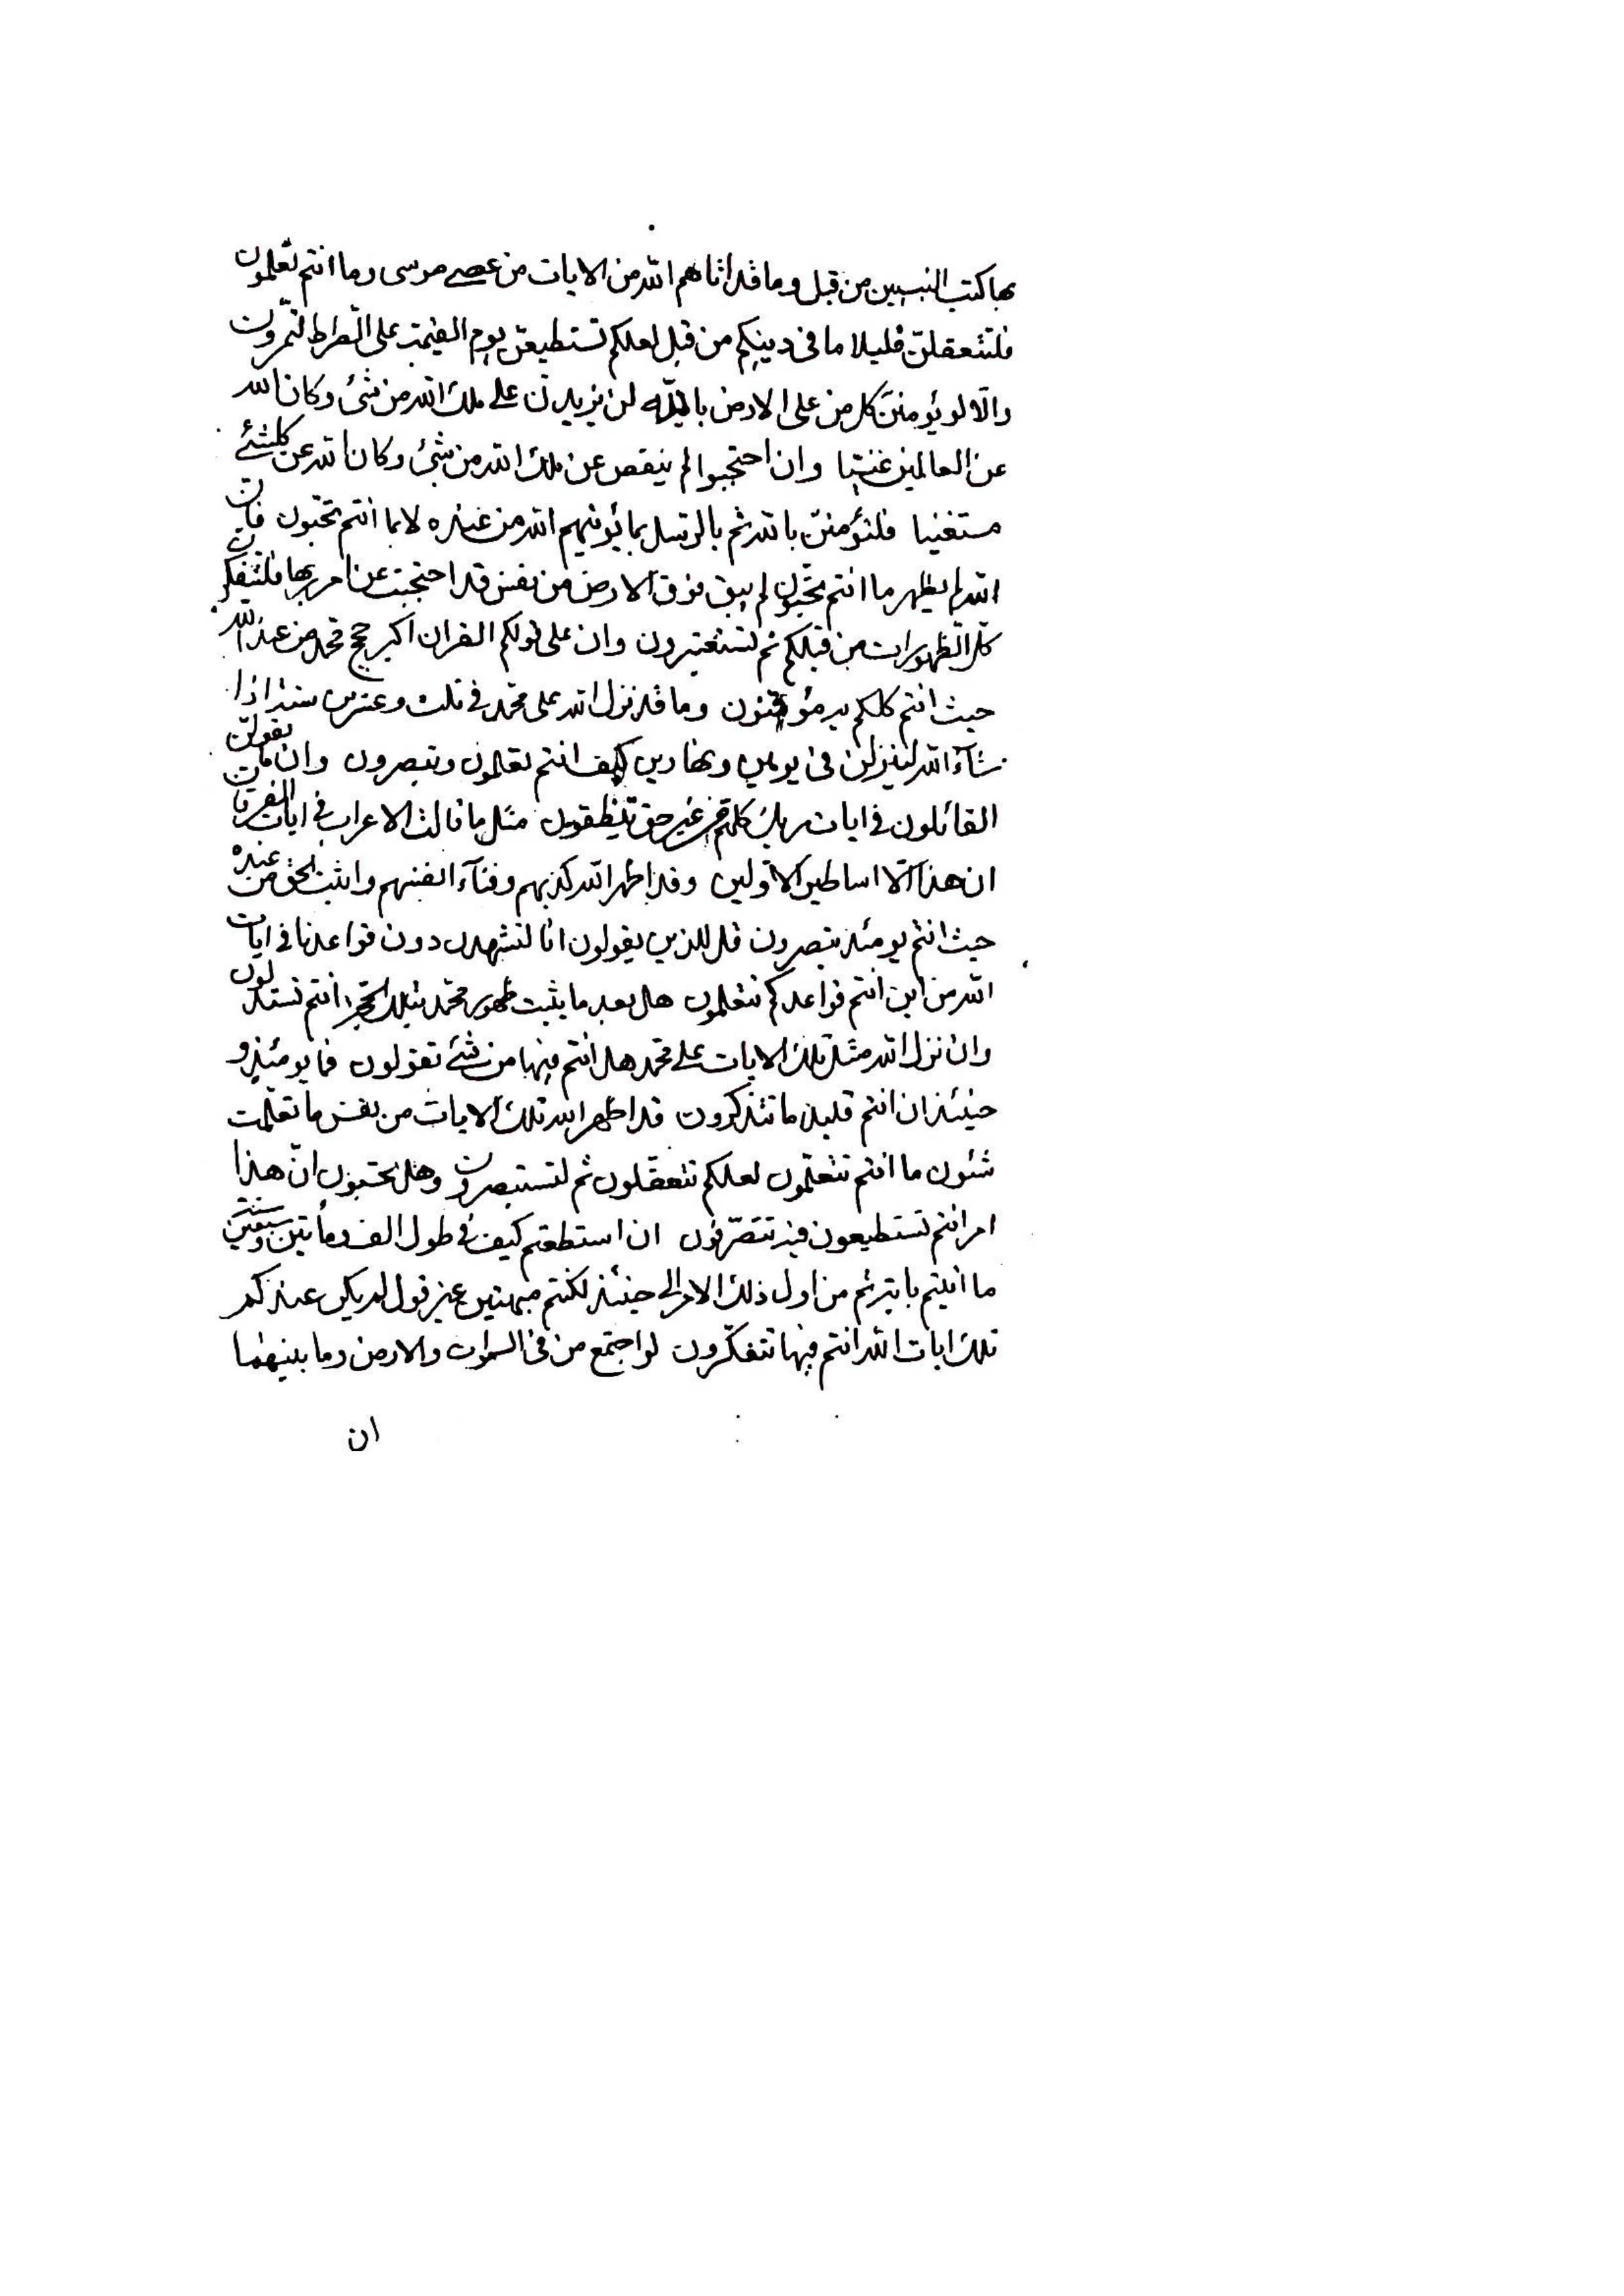 بها كتب النبيين من قبل وما قد اتاهم الله من الايات من عصى موسى وما انتم تعلمون
فلتتعقلن قليلا ما فى دينكم من قبل لعلكم تستطيعن يوم القيمة على الصراط لتمرون
والا لو يؤمنن كل من على الارض بالله لن يزيدن على ملك الله من شئ وكان الله
عن العالمين غنيا وان احتجبوا لم ينقص عن ملك الله من شئ وكان الله عن كلشئ
مستغنيا فلتؤمنن بالله ثم بالرسل بما يؤتيهم الله من عنده لا بما انتم تحبون فان
الله لم يظهر ما انتم تحبون لم يبق فوق الارض من نفس قد احتجبت عن امر ربها فلتتفكرن
كل الظهورات من قبلكم ثم لتستعتبرون وان على قولكم القران اكبر حجج محمد من عند الله
حيث انتم كلكم به موقنون وما قد نزل الله على محمد فى ثلث وعشرين سنة اذا
شآء الله لينزلن فى يومين ونهارين كيف انتم تعلمون وتبصرون وان ما يقولن
القائلون فى ايات ربك كلهم غير حق ينطقون مثل ما قالت الاعراب فى ايات الفرقان
ان هذا الا اساطير الاولين وقد اظهر الله كذبهم وفنآء انفسهم واثبت الحق من عنده
حيث انتم يومئذ تبصرون قل للذين يقولون انا لنشهدن دون قواعدنا فى ايات
الله من اين انتم قواعدكم تتعلمون هل بعد ما يثبت ظهور محمد بتلك الحجة انتم تستدلون
وان نزل الله مثل تلك الايات على محمد هل انتم فيها من شئ تقولون فما يومئذ و
حينئذ ان انتم قليلا ما تتذكرون قد اظهر الله تلك الايات من نفس ما تعلمت
شئون ما انتم تتعلمون لعلكم تتعقلون ثم لتستبصرون وهل تحسبون ان هذا
امر انتم تستطيعون فيه تتصرفون ان استطعتم كيف فى طول الف ومأتين وسبعين سنة
ما اتيتم باية ثم من اول ذلك الامر الى حينئذ لكنتم مبهتين غير قول لم يكن عندكم
تلك ايات الله انتم فيها تتفكرون لو اجتمع من فى السموات والارض وما بينهما
ان